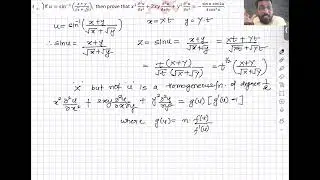 If u = sin⁻¹((x+y)/(√x+√y)), then prove that x² ∂²u/∂x² + 2xy ∂²u/∂x∂y + y² ∂²u/∂y²
u = sin⁻¹ (x+y)/(√x+√y)
x = xt y = yt
sinu = (x+y)/(√x+√y)
z = sinu = (x+y)/(√x+√y) = (xt + yt)/(√xt + √yt)
= t(x+y)/(√t(√x+√y)) = t^(1/2) (x+y)/(√x+√y)
but not u is a homogeneous fn. of degree 1/2
x² ∂²u/∂x² + 2xy ∂²u/∂x∂y + y² ∂²u/∂y² = g(u) [g'(u) - 1]
where g(u) = n f(u)/f'(u)